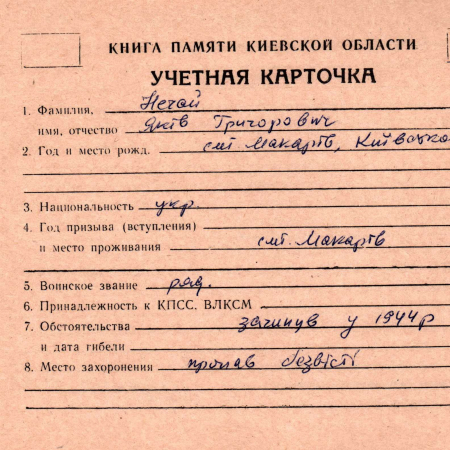 КНИГА ПАМЯТИ КИЕВСКОЙ ОБЛАСТИ
УЧЕТНАЯ КАРТОЧКА
1. Фамилия, Нечай
имя, отчество Яків Григорович
2. Год и место рожд. смт Макарів, Київської
3. Национальность укр.
4. Год призыва (вступления)
и место проживания смт. Макарів
5. Воинское звание ряд.
6. Принадлежность к КПСС, ВЛКСМ
7. Обстоятельства загинув у 1944 р
и дата гибели
8. Место захоронения пропав безвісті